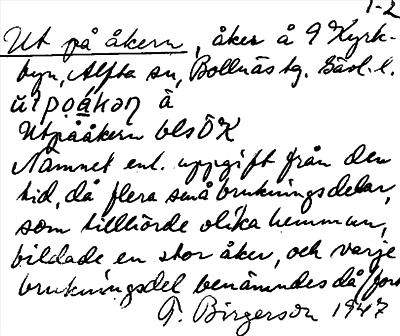 1-2
Ut på åkern, åker å 9 Kyrk-
byn, Alfta sn, Bollnäs tg. Gävl. l.
ùtpǫákǝn å
Utpååkern bls ÖK
Namnet enl. uppgift från den
tid, då flera små brukningsdelar,
som tillhörde olika hemman,
bildade en stor åker, och varje
brukningsdel benämndes då fort
T. Birgerson 1947